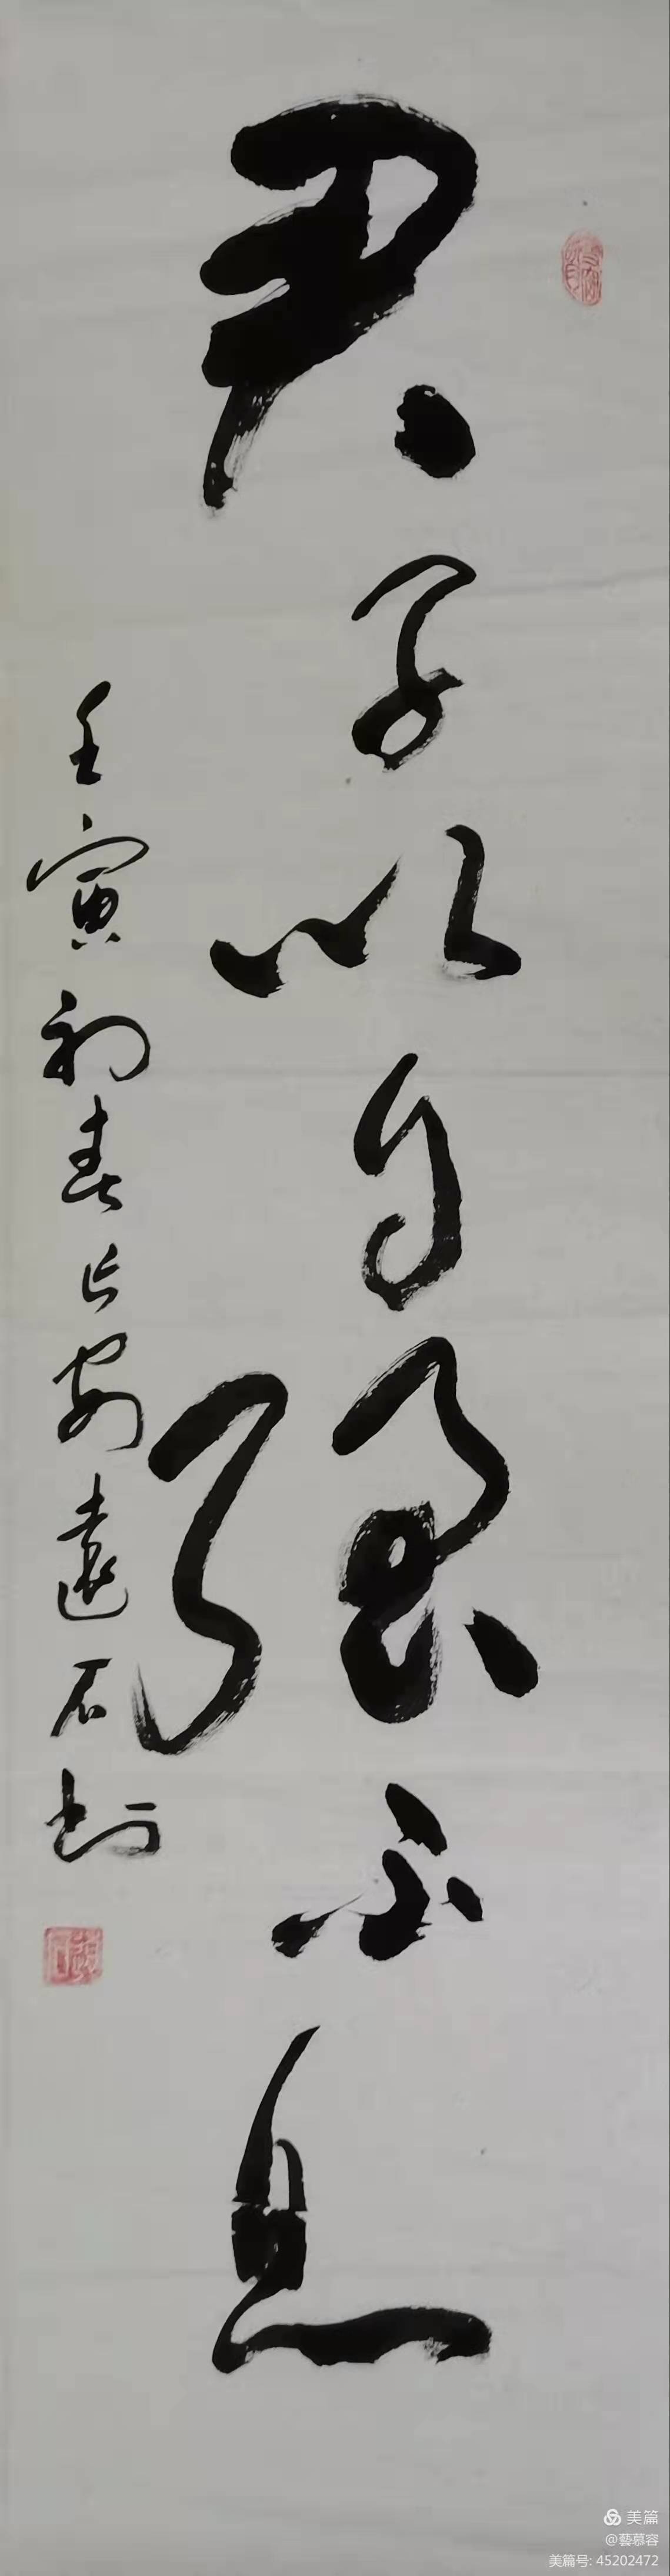 君子以自强不息
壬寅初春长安远石书
美篇
@藝慕容
美篇号: 45202472